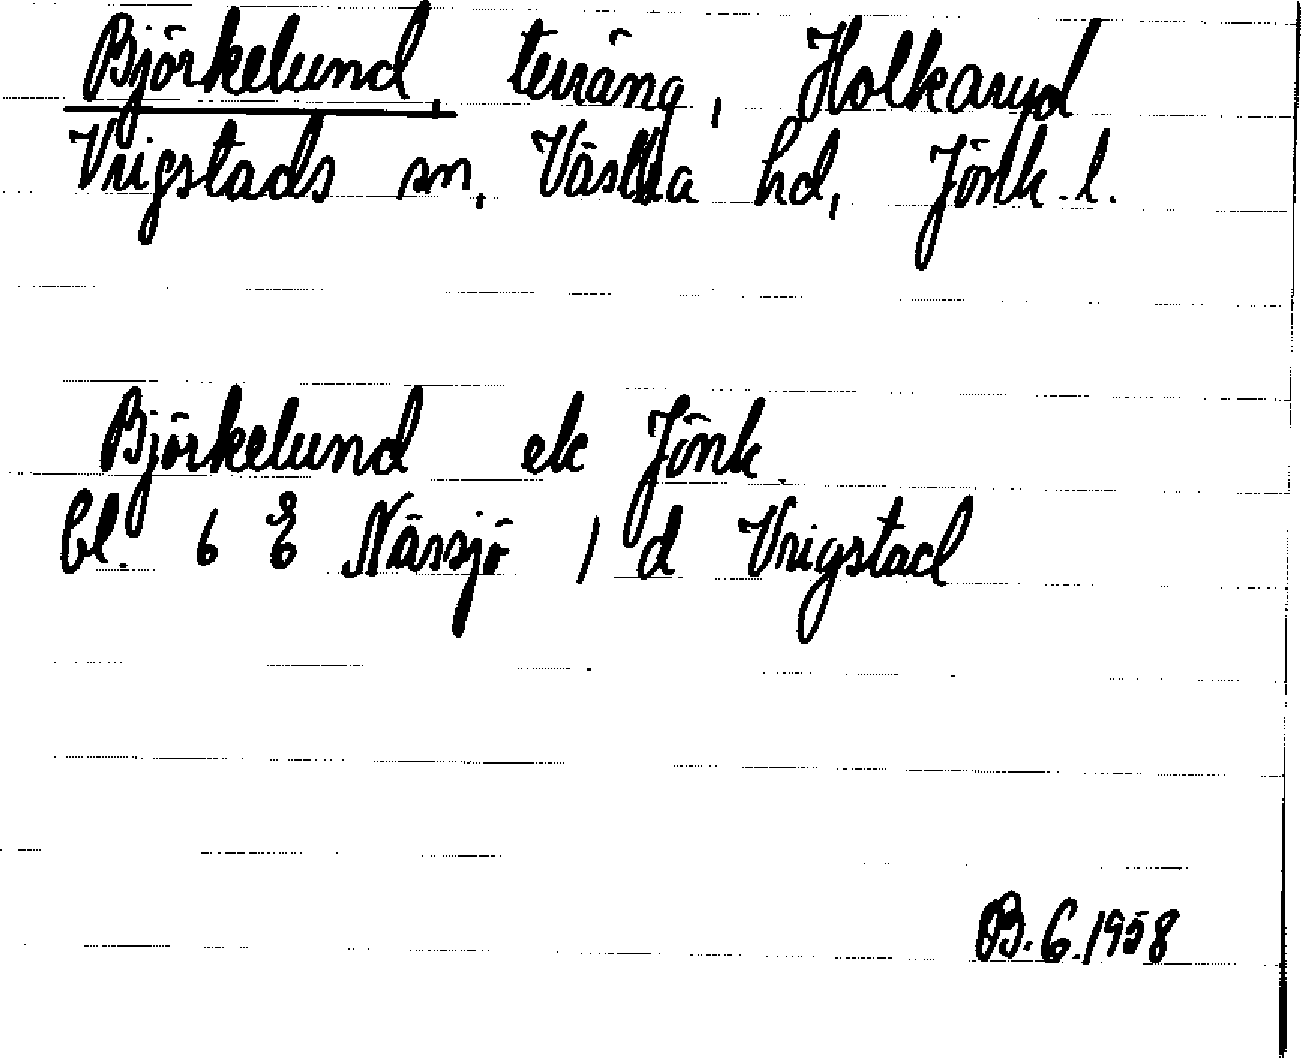 Björkelund, terräng, Holkaryd
Vrigstads sn, Västra hd, Jönk. l.
Björkelund ek Jönk.
bl. 6 E Nässjö / d Vrigstad
B. G. 1958